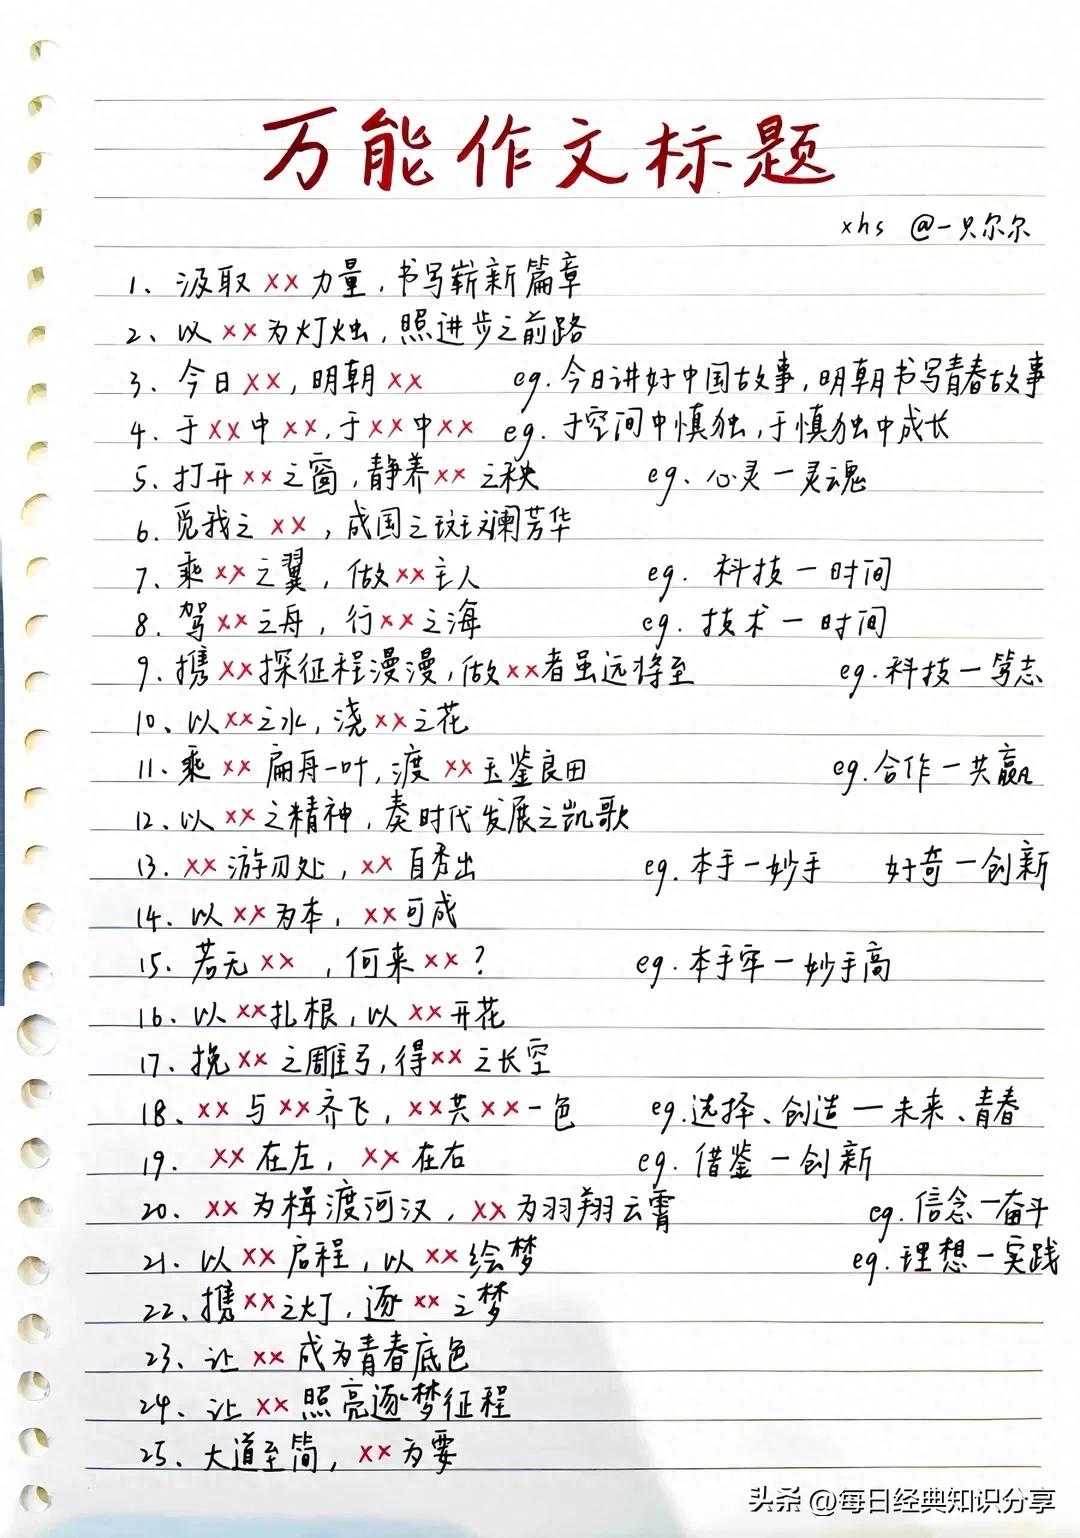 万能作文标题
xhs @一只尔尔
1、汲取 xx 力量，书写崭新篇章
2、以 xx 为灯烛，照进步之前路
3、今日 xx，明朝 xx eg. 今日讲好中国故事，明朝书写青春故事
4、于 xx 中 xx，于 xx 中 xx eg. 于空间中慎独，于慎独中成长
5、打开 xx 之窗，静养 xx 之秧 eg、心灵一灵魂
6、觅我之 xx，成国之斑斓芳华
7、乘 xx 之翼，做 xx 主人 eg. 科技一时间
8、驾 xx 之舟，行 xx 之海 eg. 技术一时间
9、携 xx 探征程漫漫，做 xx 者虽远将至 eg. 科技一笃志
10、以 xx 之水，浇 xx 之花
11、乘 xx 扁舟一叶，渡 xx 玉鉴良田 eg. 合作一共赢
12、以 xx 之精神，奏时代发展之凯歌
13、xx 游刃处，xx 自秀出 eg. 本手一妙手 好奇一创新
14、以 xx 为本，xx 可成
15、若无 xx ，何来 xx？ eg. 本手牢一妙手高
16、以 xx 扎根，以 xx 开花
17、挽 xx 之雕弓，得 xx 之长空
18、xx 与 xx 齐飞，xx 共 xx 一色 eg. 选择、创造一未来、青春
19、xx 在左，xx 在右 eg. 借鉴一创新
20、xx 为楫渡河汉，xx 为羽翔云霄 eg. 信念一奋斗
21、以 xx 启程，以 xx 绘梦 eg. 理想一实践
22、携 xx 之灯，逐 xx 之梦
23、让 xx 成为青春底色
24、让 xx 照亮逐梦征程
25、大道至简，xx 为要
头条 @每日经典知识分享